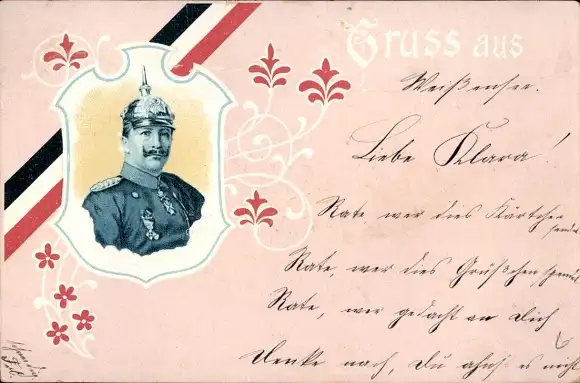 Gruss aus
Weißensee.
Liebe Klara!
Rate wer dies Kärtchen
sendet
Rate, wer dies Grüßchen spendet
Rate, wer gedacht an Dich
Denke nach, Du ahnst es nicht